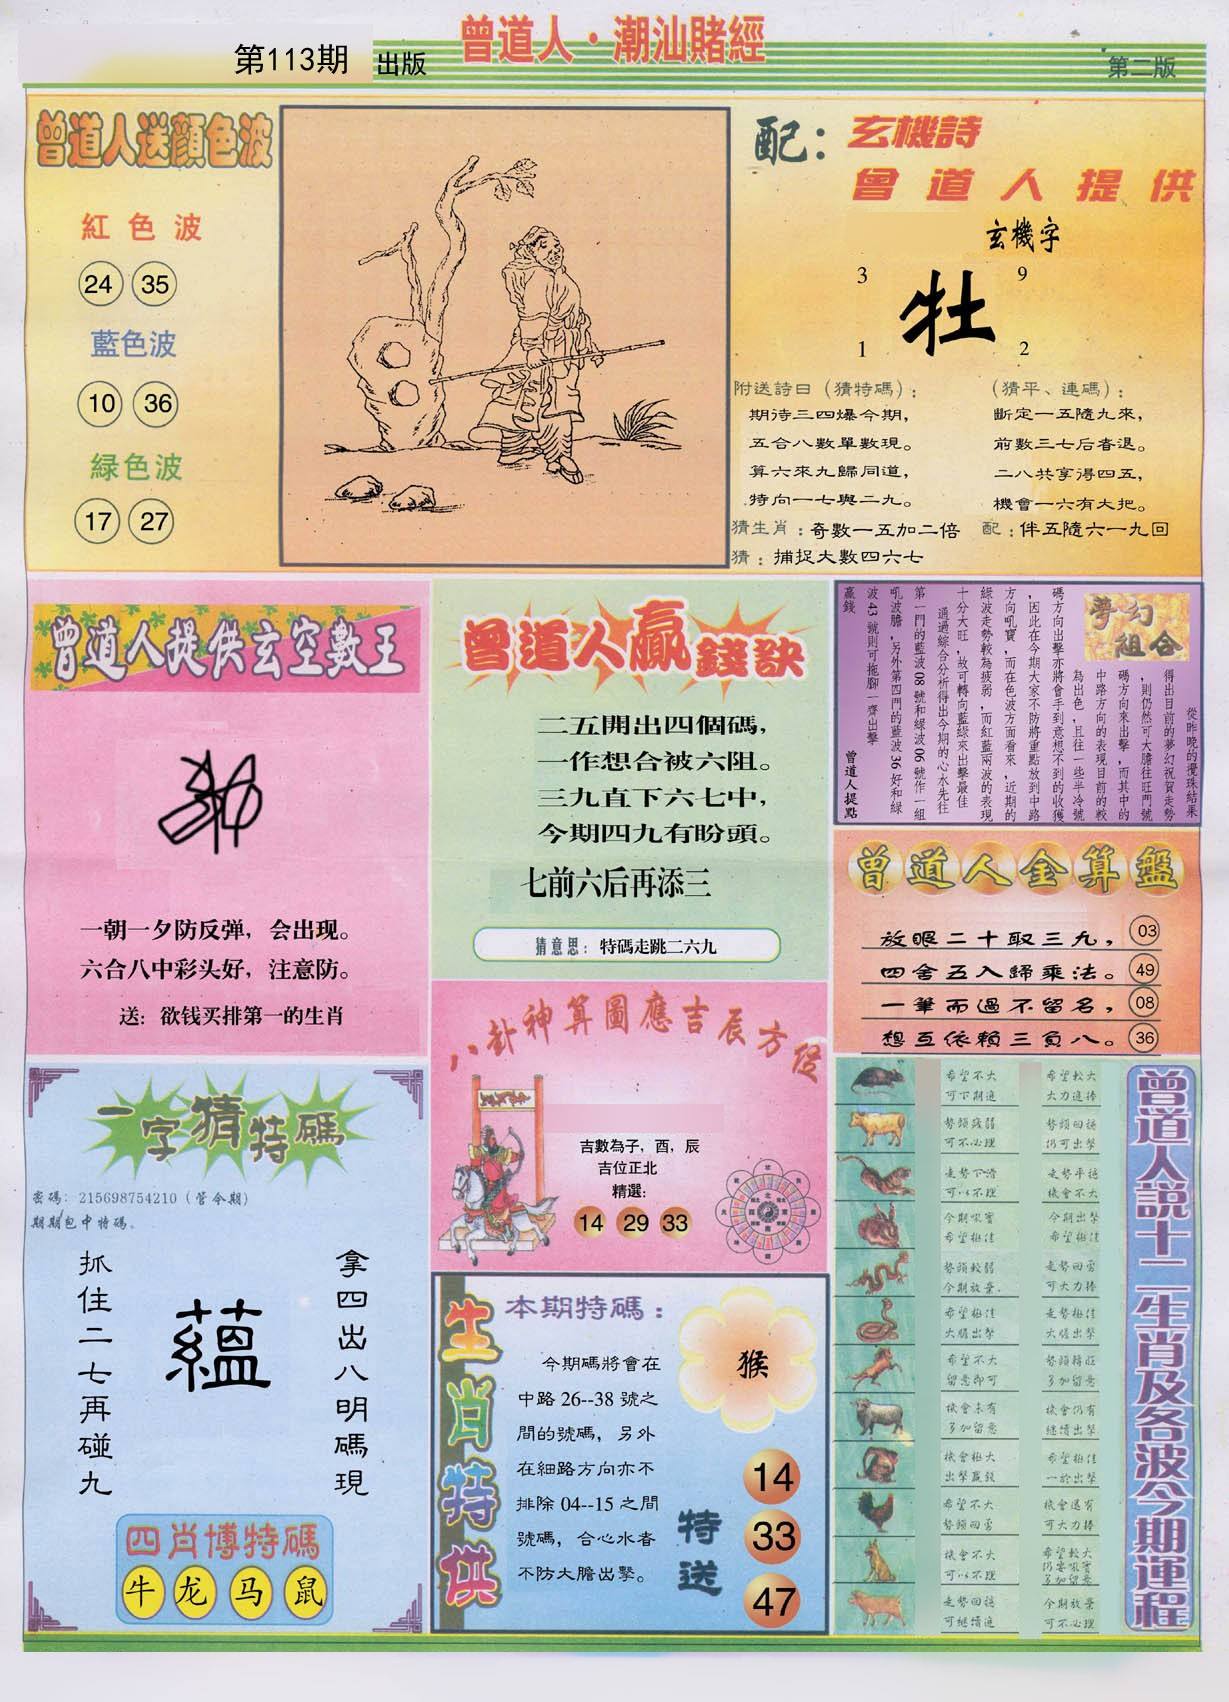 第113期 出版
曾道人·潮汕賭經
第二版
曾道人送顔色波
紅色波
24 35
藍色波
10 36
緑色波
17 27
配：玄機詩
曾道人提供
玄機字
3 9
牡
1 2
附送詩日（猜特碼）：
期待三四爆今期，
五合八數單數現。
算六來九歸同道，
特向一七與二九。
（猜平、連碼）：
斷定一五隨九來，
前數三七后者退。
二八共享得四五，
機會一六有大把。
猜生肖：奇數一五加二倍
配：伴五隨六一九回
猜：捕捉大數四六七
曾道人提供玄空數王
一朝一夕防反弹，会出现。
六合八中彩头好，注意防。
送：欲钱买排第一的生肖
曾道人贏錢訣
二五開出四個碼，
一作想合被六阻。
三九直下六七中，
今期四九有盼頭。
七前六后再添三
猜意思：特碼走跳二六九
夢幻組合
從昨晚的攪珠結果
得出目前的夢幻祝賀走勢
，則仍然可大膽往旺門號
碼方向來出擊，而其中的
中路方向的表現目前的較
為出色，且往一些半冷號
碼方向出擊亦將會手到意想不到的收獲
，因此在今期大家不防將重點放到中路
方向吼寶，而在色波方面看來，近期的
綠波走勢較為疲弱，而紅藍兩波的表現
十分大旺，故可轉向藍綠來出擊最佳
通過綜合分析得出今期的心水先往
第一門的藍波08號和綠波06號作一組
吼波膽，另外第四門的藍波36好和綠
波43號則可拖腳一齊出擊
贏錢
曾道人提點
曾道人金算盤
放眼二十取三九， 03
四舍五入歸乘法。 49
一筆而過不留名， 08
想互依賴三負八。 36
八卦神算圖應吉辰方位
吉數為子，酉，辰
吉位正北
精選：
14 29 33
一字猜特碼
密碼：215698754210（管令期）
期期包中特碼。
拿四出八明碼現
蘊
抓住二七再碰九
四肖博特碼
牛 龙 马 鼠
生肖特供
本期特碼：
今期碼將會在
中路26--38號之
間的號碼，另外
在細路方向亦不
排除04--15之間
號碼，合心水者
不防大膽出擊。
猴
特送
14
33
47
曾道人説十二生肖及各波今期運程
希望不大
可下期追
希望較大
大力追捧
勢頭殘弱
可不必理
勢頭回穩
仍可出擊
走勢下滑
可以不理
走勢平穩
機會不大
今期吼寶
希望極佳
今期出擊
希望極佳
勢頭較弱
今期放棄.
走勢回勇
可大力捧
希望極佳
大膽出擊
走勢極佳
大膽出擊
希望不大
留意即可
勢頭轉旺
多加留意
機會未有
多加留意
機會仍有
繼續出擊
機會極大
出擊贏錢
希望極佳
一於出擊
希望不大
勢頭回勇
機會還有
可大力捧
機會不大
可以不理
希望較大
仍要吼寶
多加留意
走勢回穩
可繼續追
今期放棄
可不必理